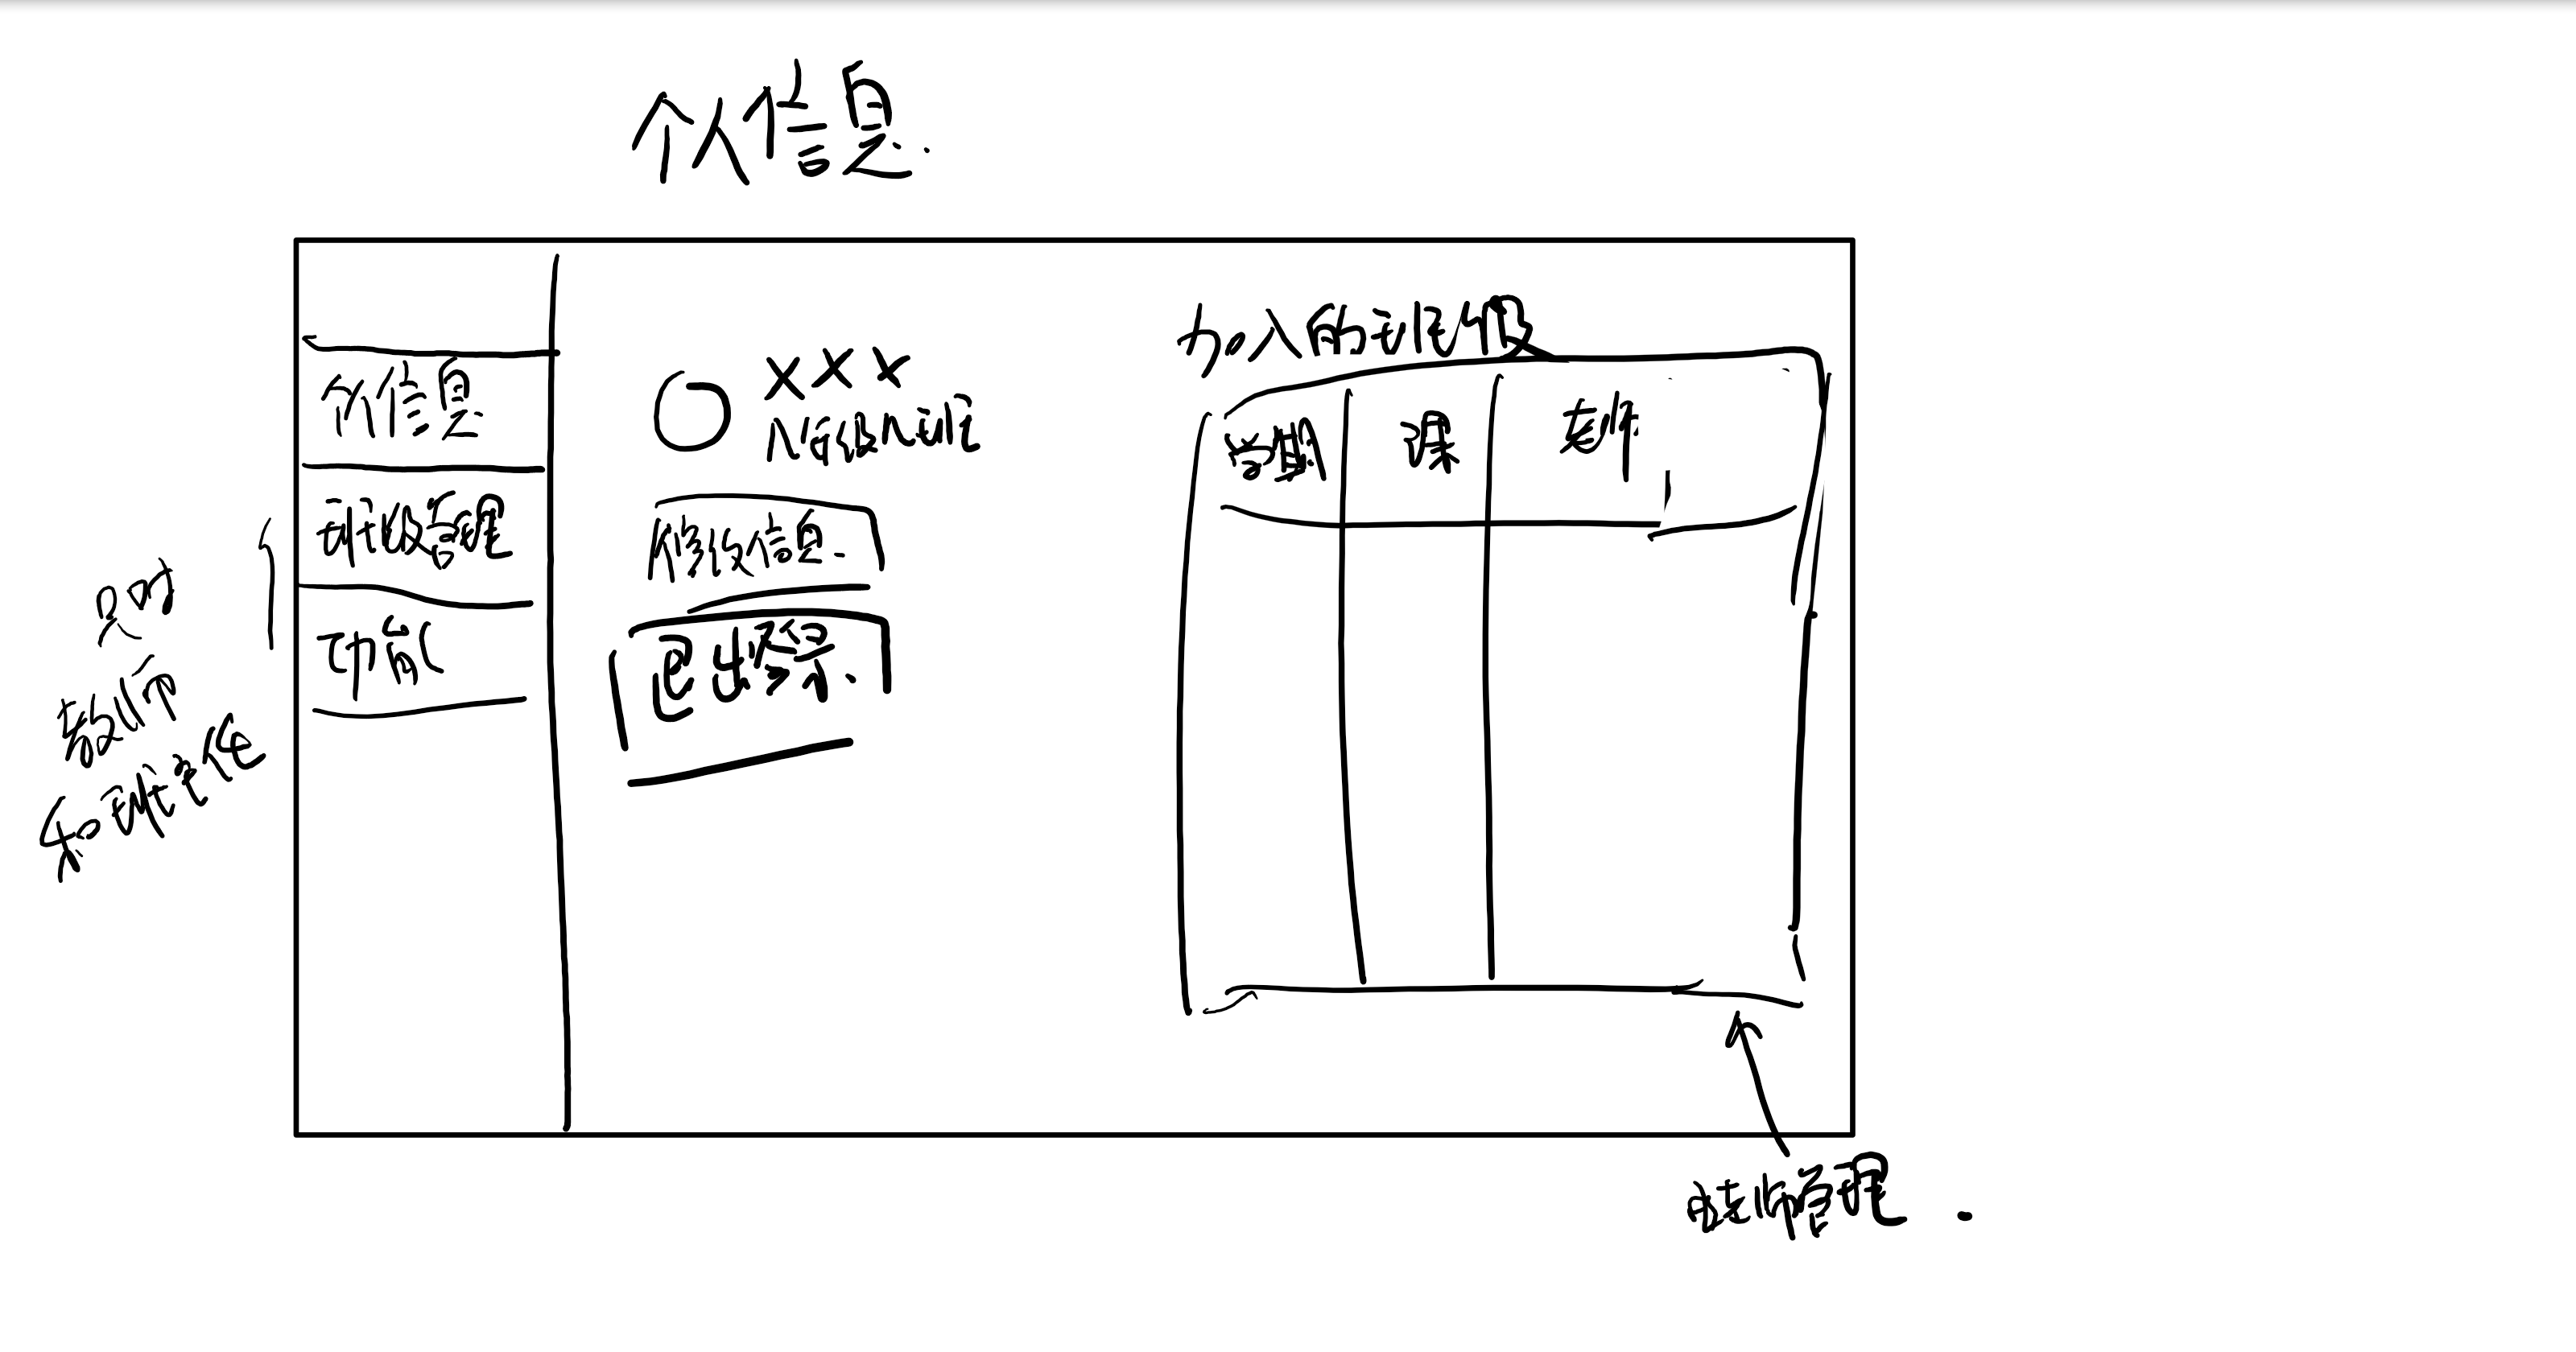 个人信息.
个人信息
班级管理
功能
只对
教师
和班主任
XXX
N年级N班
修改信息.
退出登录.
加入的班级
学期 课 老师
由老师管理.